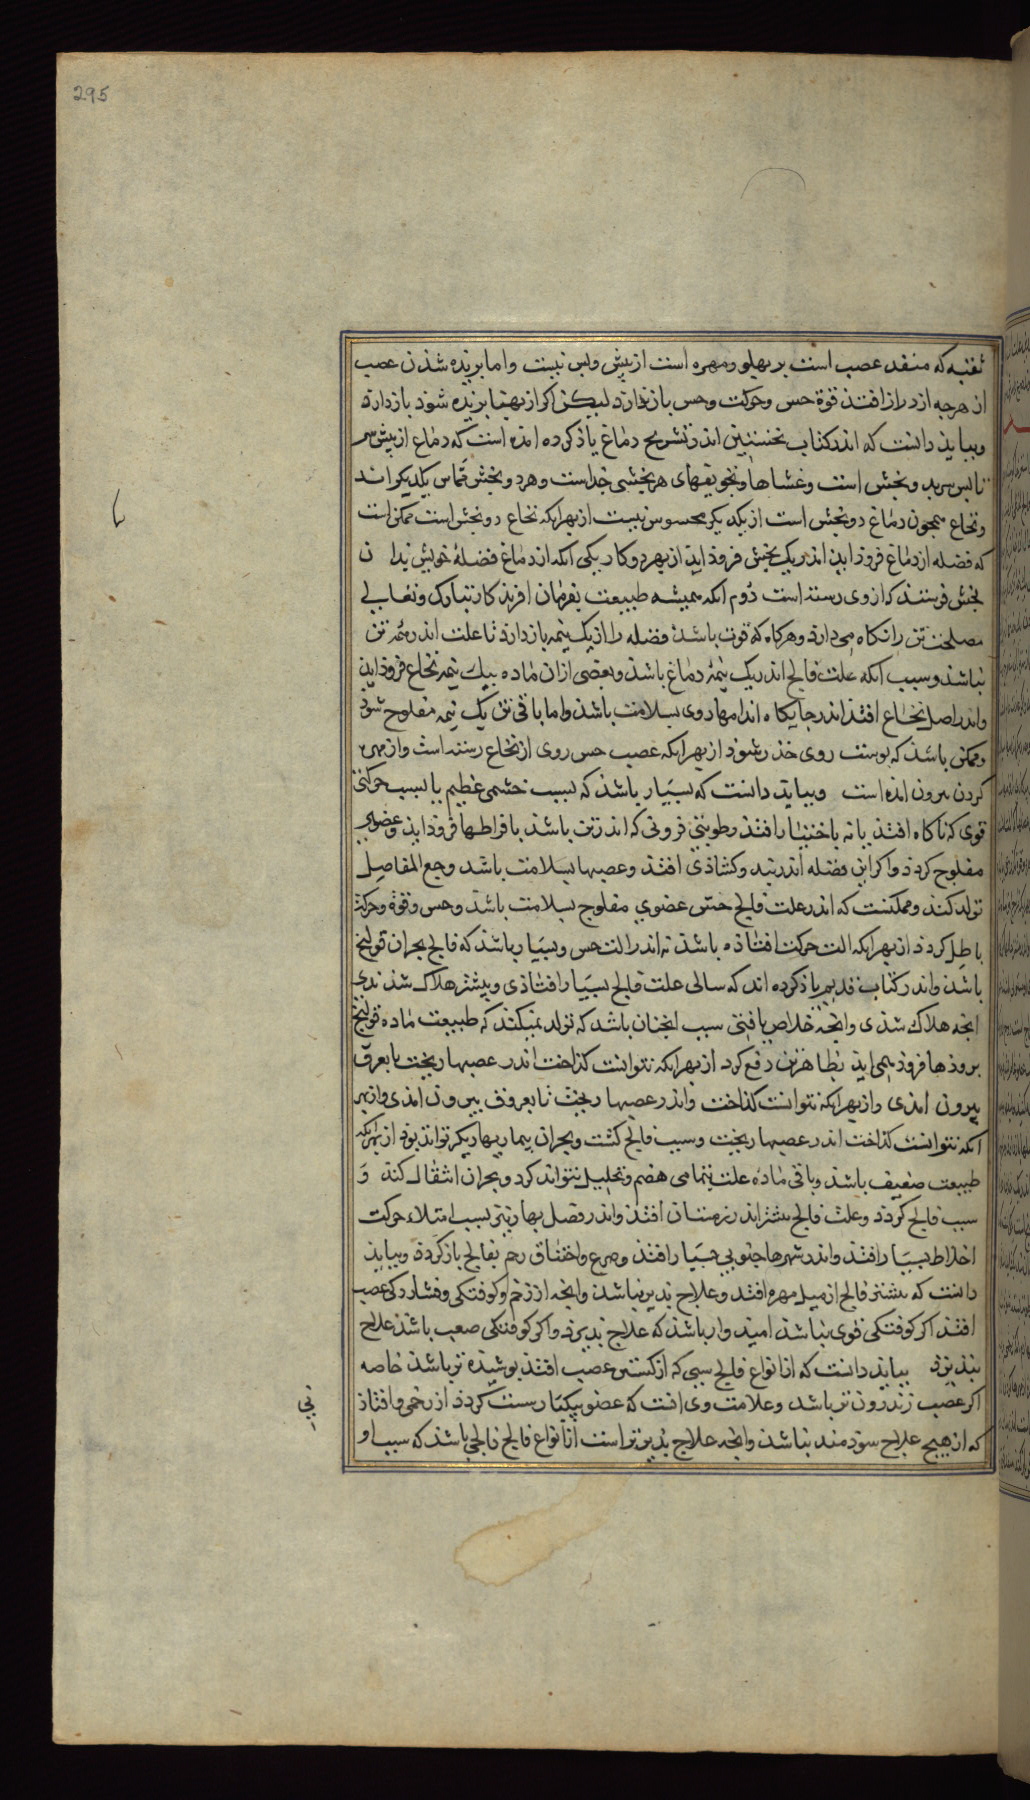 295
ثقبه که منفذ عصب است بر پهلو ومهره است از پیش وپس نیست واما بریده شدن عصب
از هرچه از دراز افتد قوة حس وحرکت وحس باز ندارد لیکن اکر از پهنا بریده شود باز دارد
وبباید دانست که اندر کتاب نخستین اندر تشریح دماغ یاذ کرده امده است که دماغ از پیش سر
تا پس سر بدو بخش است وغشاها وتجویفهای هر بخشی جداست وهر دو بخش مماس یکدیکراند
ونخاع همچون دماغ دو بخش است از یکدیکر محسوس نیست از بهر انکه نخاع دو بخش است ممکن است
که فضله از دماغ فروذ اید اندر یک بخش فروذ اید از بهر دو کار یکی انکه از دماغ فضلهٔ خویش بدان
بخش فرستد که از وی رسته است دوم انکه همیشه طبیعت بفرمان افریذکار تبارک وتعالی
مصلحت تن را نکاه می دارد وهرکاه که قوت باشد فضله را از یک نیمه باز دارد تا علت اندر همه تن
نباشد وسبب انکه علت فالج اندر یک نیمهٔ دماغ باشد وبعضی از ان ماده بیک نیمه نخاع فروذ اید
واندر اصل نخاع افتد اندر جایکاه اندامها روی بسلامت باشد واما باقی تن یک نیمه مفلوج شود
وممکن باشد که پوست روی خدر شود از بهر انکه عصب حس روی از نخاع رسته است واز مهره
کردن بیرون امده است وبباید دانست که بسیار باشد که بسبب خشمی عظیم یا بسبب حرکتی
قوی که ناکاه افتد یا نه باختیار افتد رطوبتی فزونی که اندر تن باشد باقراطها فروذ اید وعضوی
مفلوج کردد واکر این فضله اندر بند وکشاذی افتد وعصبها بسلامت باشد وجع المفاصل
تولد کند وممکنست که اندر علت فالج حس عضوی مفلوج بسلامت باشد وحس وقوة وحرکت
باطل کردد از بهر انکه الت حرکت افتاذه باشد نه اندر الت حس وبسیار باشد که فالج بحران قولنج
باشد واندر کتاب قدیم یاذ کرده اند که سالی علت فالج بسیار افتاذی وبیشتر هلاک شدندی
انچه هلاک شدی وانچه خلاص یافتی سبب انچنان باشد که تولد نمیکند که طبیعت ماده قولنج
بروذها فروذ همی اید بظاهر تن دفع کرد از بهر انکه نتوانست کذاخت اندر عصبها ریخت تا بعرق
بیرون امدی واز بهر انکه نتوانست کذاخت واندر عصبها ریخت تا بعروق بیرون امدی واز بهر
انکه نتوانست کذاخت اندر عصبها ریخت وسبب فالج کشت وبحران بیماریها دیکر تواند بود از بهر انکه
طبیعت ضعیف باشد وباقی مادهٔ علت بتمامی هضم وتحلیل نتواند کرد وبحران انتقال کند و
سبب فالج کردد وعلت فالج بیشتر اندر زمستان افتد واندر فصل بهار نیز بسبب امتلاء حرکت
اخلاط بسیار افتد واندر شهرها جنوبی بسیار افتد وصرع واختناق رحم بفالج باز کردد وبباید
دانست که بیشتر فالج از میل مهره افتد وعلاج بذیر نباشد وانچه از زخم وکوفتکی وفشاردکی عصب
افتد اکر کوفتکی قوی نباشد امید وار باشد که علاج بدیرد واکر کوفتکی صعب باشد علاج
نپذیرد بباید دانست که از انواع فالج سببی که از کستن عصب افتد پوشیده تر باشد خاصه
اکر عصب اندرون تر باشد وعلامت وی انست که عضو بیکبار سست کردد از زخمی وافتاذ
که از هیچ علاج سودمند نباشد وانچه علاج بذیرتر است از انواع فالج فالجی باشد که سبب او